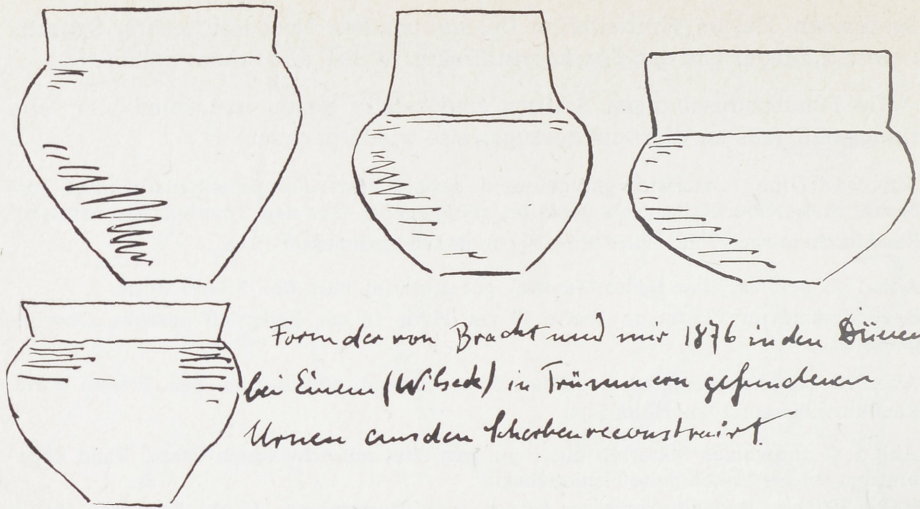 Form der von Bracht und mir 1876 in den Dünen
bei Einem (Wilseck) in Trümmern gefundenen
Urnen aus den Scherben reconstruirt.